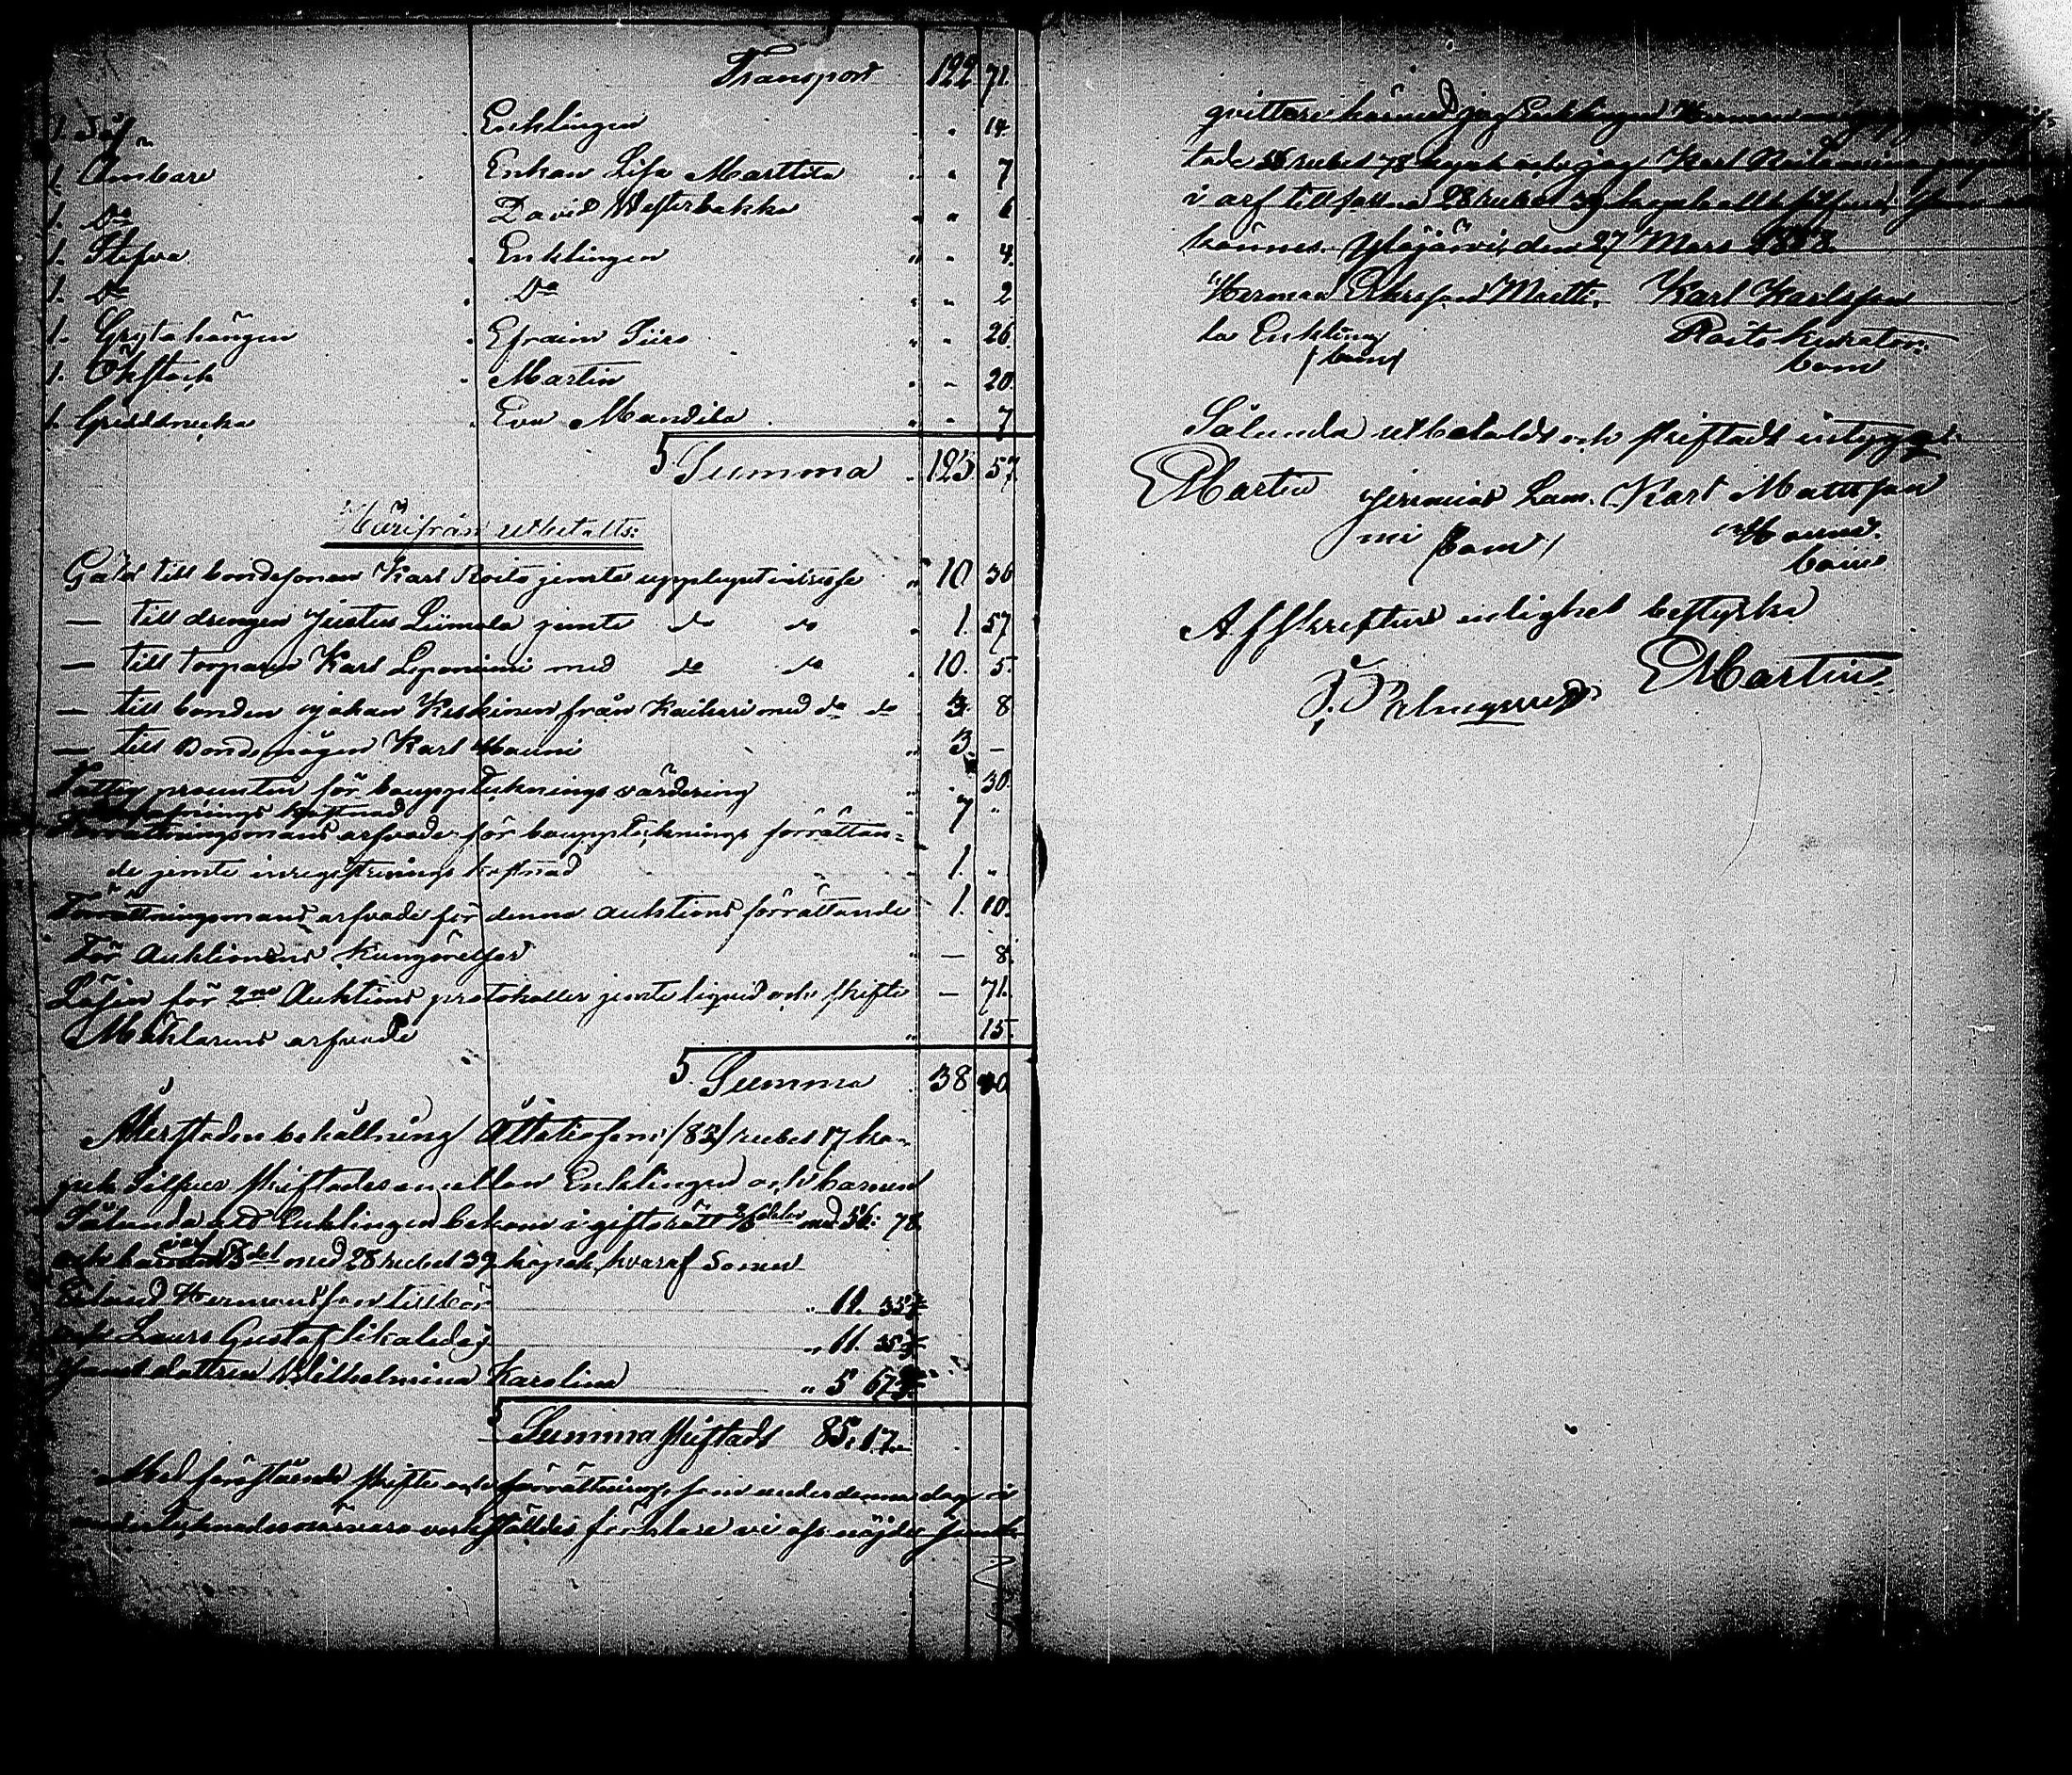 Transport 122 71.
1. Såf Enklingen " " 14
1. Ämbare Enkan Lisa Marttila " " 7
1. Do David Westerbakka " " 6
1. Stäfva Enklingen " " 4.
1. Do Do " " 2
1. Grytahängen Efraim Siiro " " 26.
1. Martin " " 20.
1. Eva Mandila " " 7
S. Summa " 123 57
Härifrån utbetalts:
Gäld till bondesonen Karl Roito jemte upplupit intresse " 10 36
— till drengen Justus Liimola jemte do do " 1. 57
— till torparen Karl Leponiemi med do do " 10. 5.
— till bonden Johan Keskinen från Kaihari med do do 3. 8
— till Bondemågen Karl Hauni " 3. —
Fattig procenten för bouppteknings värdering " " 30.
kostnad " 7 "
Förrättningsmans arfvode för bouppteknings förrättan=
de jemte inregistrerings kostnad " 1. "
Förrättningsmans arfvode för denna auktions förrättande 1. 10.
För Auktionens Kungörelser " — 8.
Lösen för 2ne Auktions protokoller jemte liqvid och skifte — 71.
Mäklarens arfvode " 15.
S. Summa 38 40
Återstoden behållning Åttatiofem /85/ rubel 17 ko-
pek Silfver skiftades emellan Enklingen och barnen
Sålunda att Enklingen bekom i giftorätt 2/3 delar med 56: 78.
och barnen i arf 1/3 del med 28 rubel 39 kopek, hvaraf Sonen
Erland Hermansson tillkom " 11. 35 3/5
och Laurs Gustaf likaledes " 11. 35 3/5
samt dottren Wilhelmina Karolina " 5 67 4/5
S. Summa skiftadt 85. 17.
Med förestående skifte och förrättning, som under denna dag i
undertecknades närvaro verkställdes, förklare vi oss nöjde samt
qvittere härmed jag Enklingen Herman
tade 56 rubel 78 kopek och jag Karl
i arf tillfallna 28 rubel 39 kopek allt silfver,
kännes. Ylöjärvi, den 27 Mars
Herman Erlsson Martti- Karl Karlsson
la Enkling Roito Kurator.
/bom/ bom
Sålunda utbetaldt och skiftadt intyga:
EMartin Jeremias Lam- Karl Mattsson
mi /bom/ Hauni.
bom
Afskriftens enlighet bestyrka
EMartin.